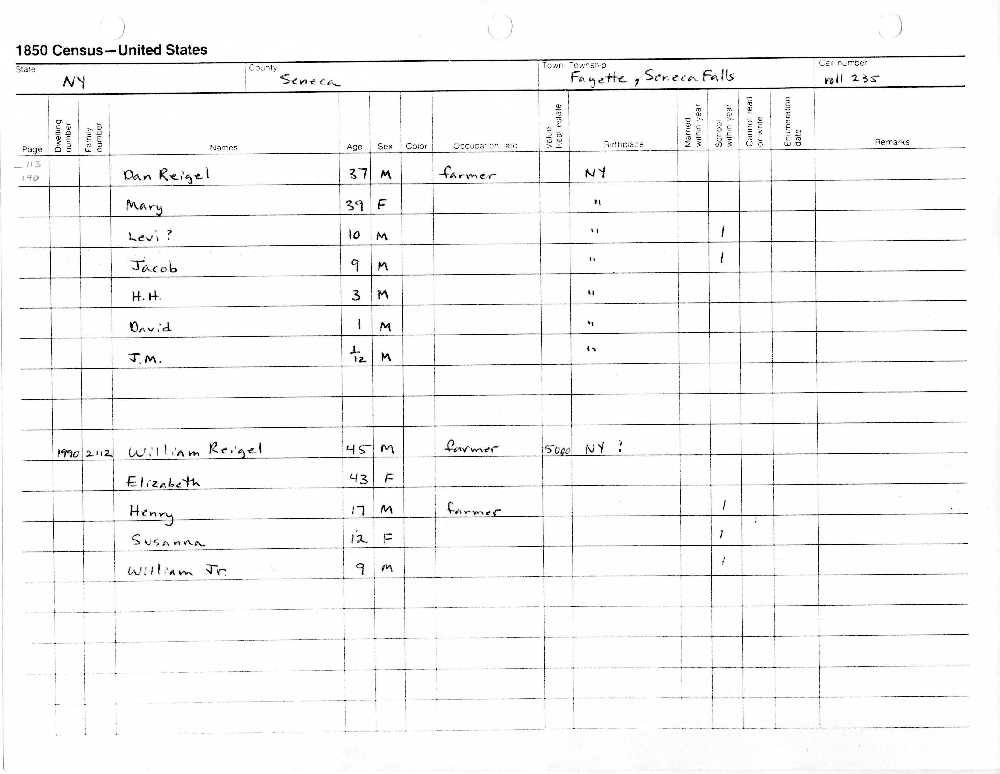 1850 Census—United States
State NY County Seneca Town Township Fayette, Seneca Falls Call number roll 235
Page Dwelling number Family number Names Age Sex Color Occupation, etc. Value real estate Birthplace Married within year School within year Cannot read or write Enumeration date Remarks
113
190 Dan Reigel 37 M farmer NY
Mary 39 F "
Levi? 10 M " /
Jacob 9 M " /
H.H. 3 M "
David 1 M "
J.M. 1/12 M "
1990 2112 William Reigel 45 M farmer 5000 NY ?
Elizabeth 43 F
Henry 17 M farmer /
Susanna 12 F /
William Jr. 9 M /